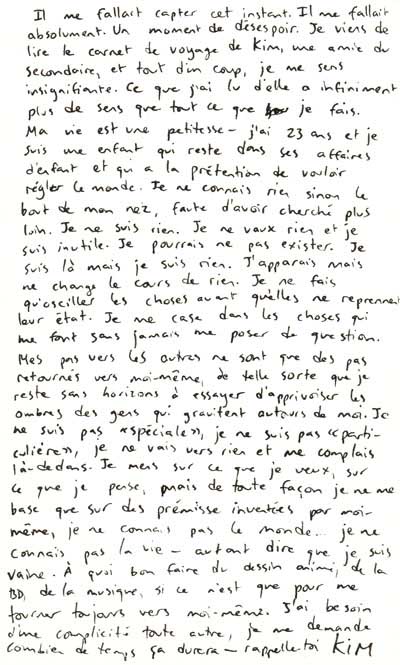 Il me fallait capter cet instant. Il me fallait
absolument. Un moment de désespoir. Je viens de
lire le carnet de voyage de Kim, une amie du
secondaire, et tout d'un coup, je me sens
insignifiante. Ce que j'ai lu d'elle a infiniment
plus de sens que tout ce que je fais.
Ma vie est une petitesse – j'ai 23 ans et je
suis une enfant qui reste dans ses affaires
d'enfant et qui a la prétention de vouloir
régler le monde. Je ne connais rien sinon le
bout de mon nez, faute d'avoir cherché plus
loin. Je ne suis rien. Je ne vaux rien et je
suis inutile. Je pourrais ne pas exister. Je
suis là mais je suis rien. J'apparais mais
ne change le cours de rien. Je ne fais
qu'osciller les choses avant qu'elles ne reprennent
leur état. Je me case dans les choses qui
me font sans jamais me poser de question.
Mes pas vers les autres ne sont que des pas
retournés vers moi-même, de telle sorte que je
reste sans horizons à essayer d'apprivoiser les
ombres des gens qui gravitent autours de moi. Je
ne suis pas «spéciale», je ne suis pas «parti-
culière», je ne vais vers rien et me complais
là-dedans. Je mens sur ce que je veux, sur
ce que je pense, mais de toute façon je ne me
base que sur des prémisse inventées par moi-
même, je ne connais pas le monde... je ne
connais pas la vie – autant dire que je suis
vaine. À quoi bon faire du dessin animé, de la
BD, de la musique, si ce n'est que pour me
tourner toujours vers moi-même. J'ai besoin
d'une complicité toute autre, je me demande
combien de temps ça durera – rappelle toi KIM